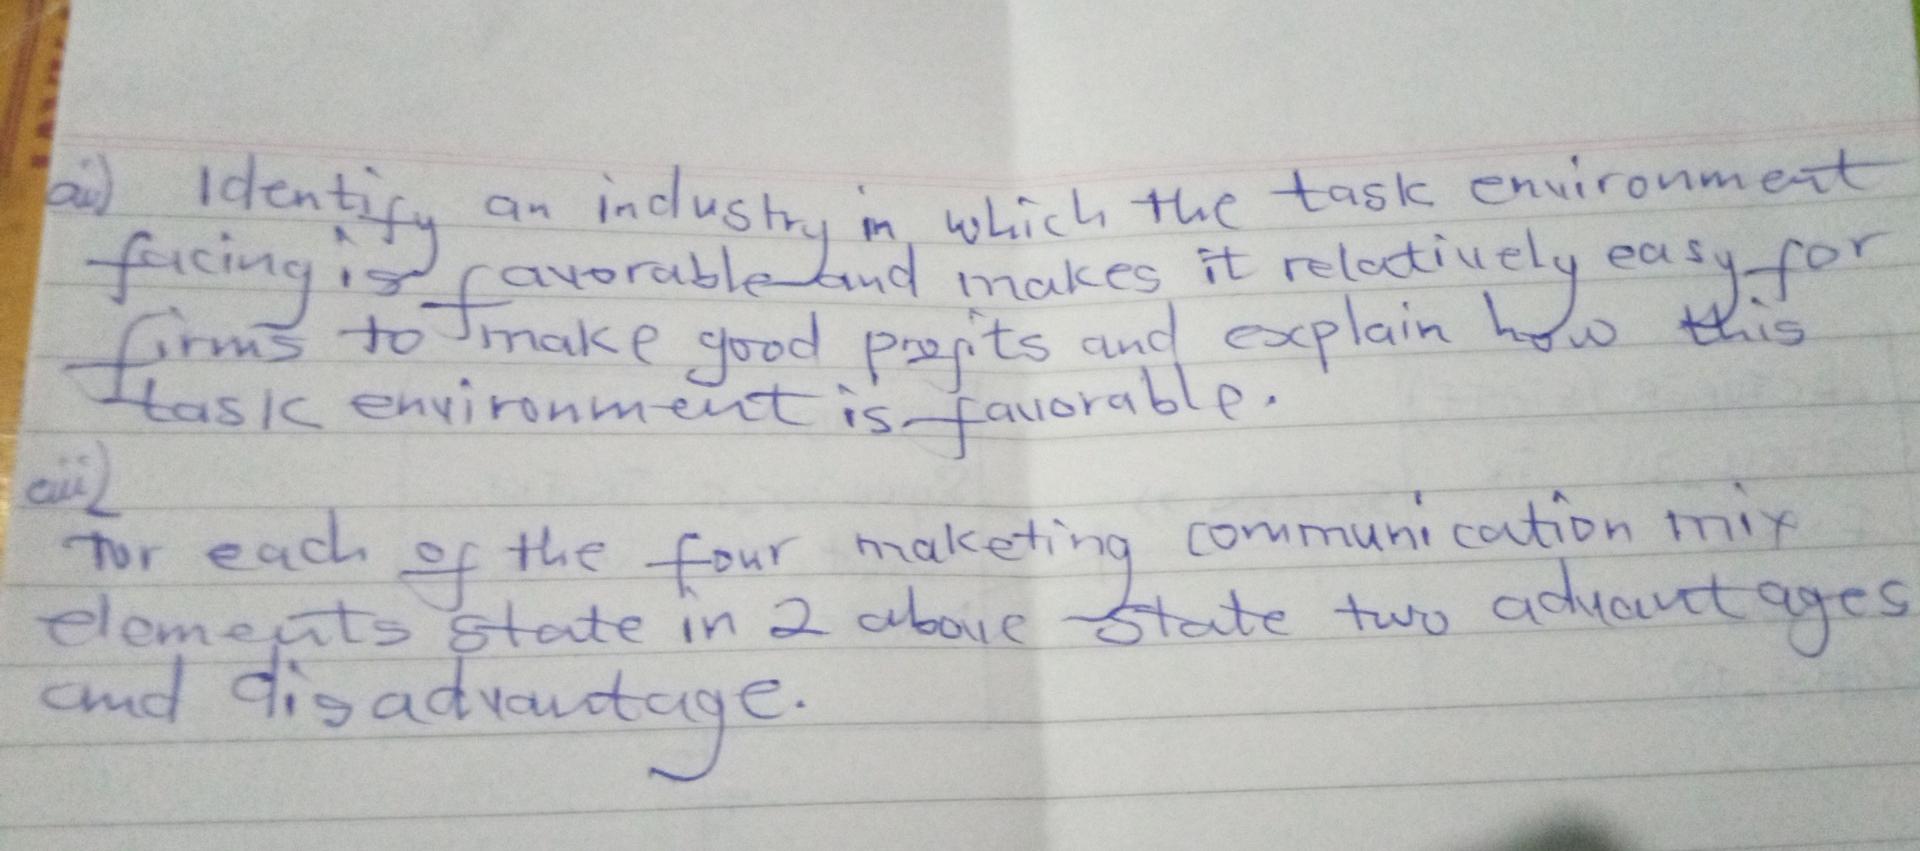 aii) Identify an industry in which the task environment
facing is favorable and makes it relatively easy for
firms to make good profits and explain how this
task environment is favorable.
aiii)
For each of the four maketing communication mix
elements state in 2 above state two advantages
and disadvantage.